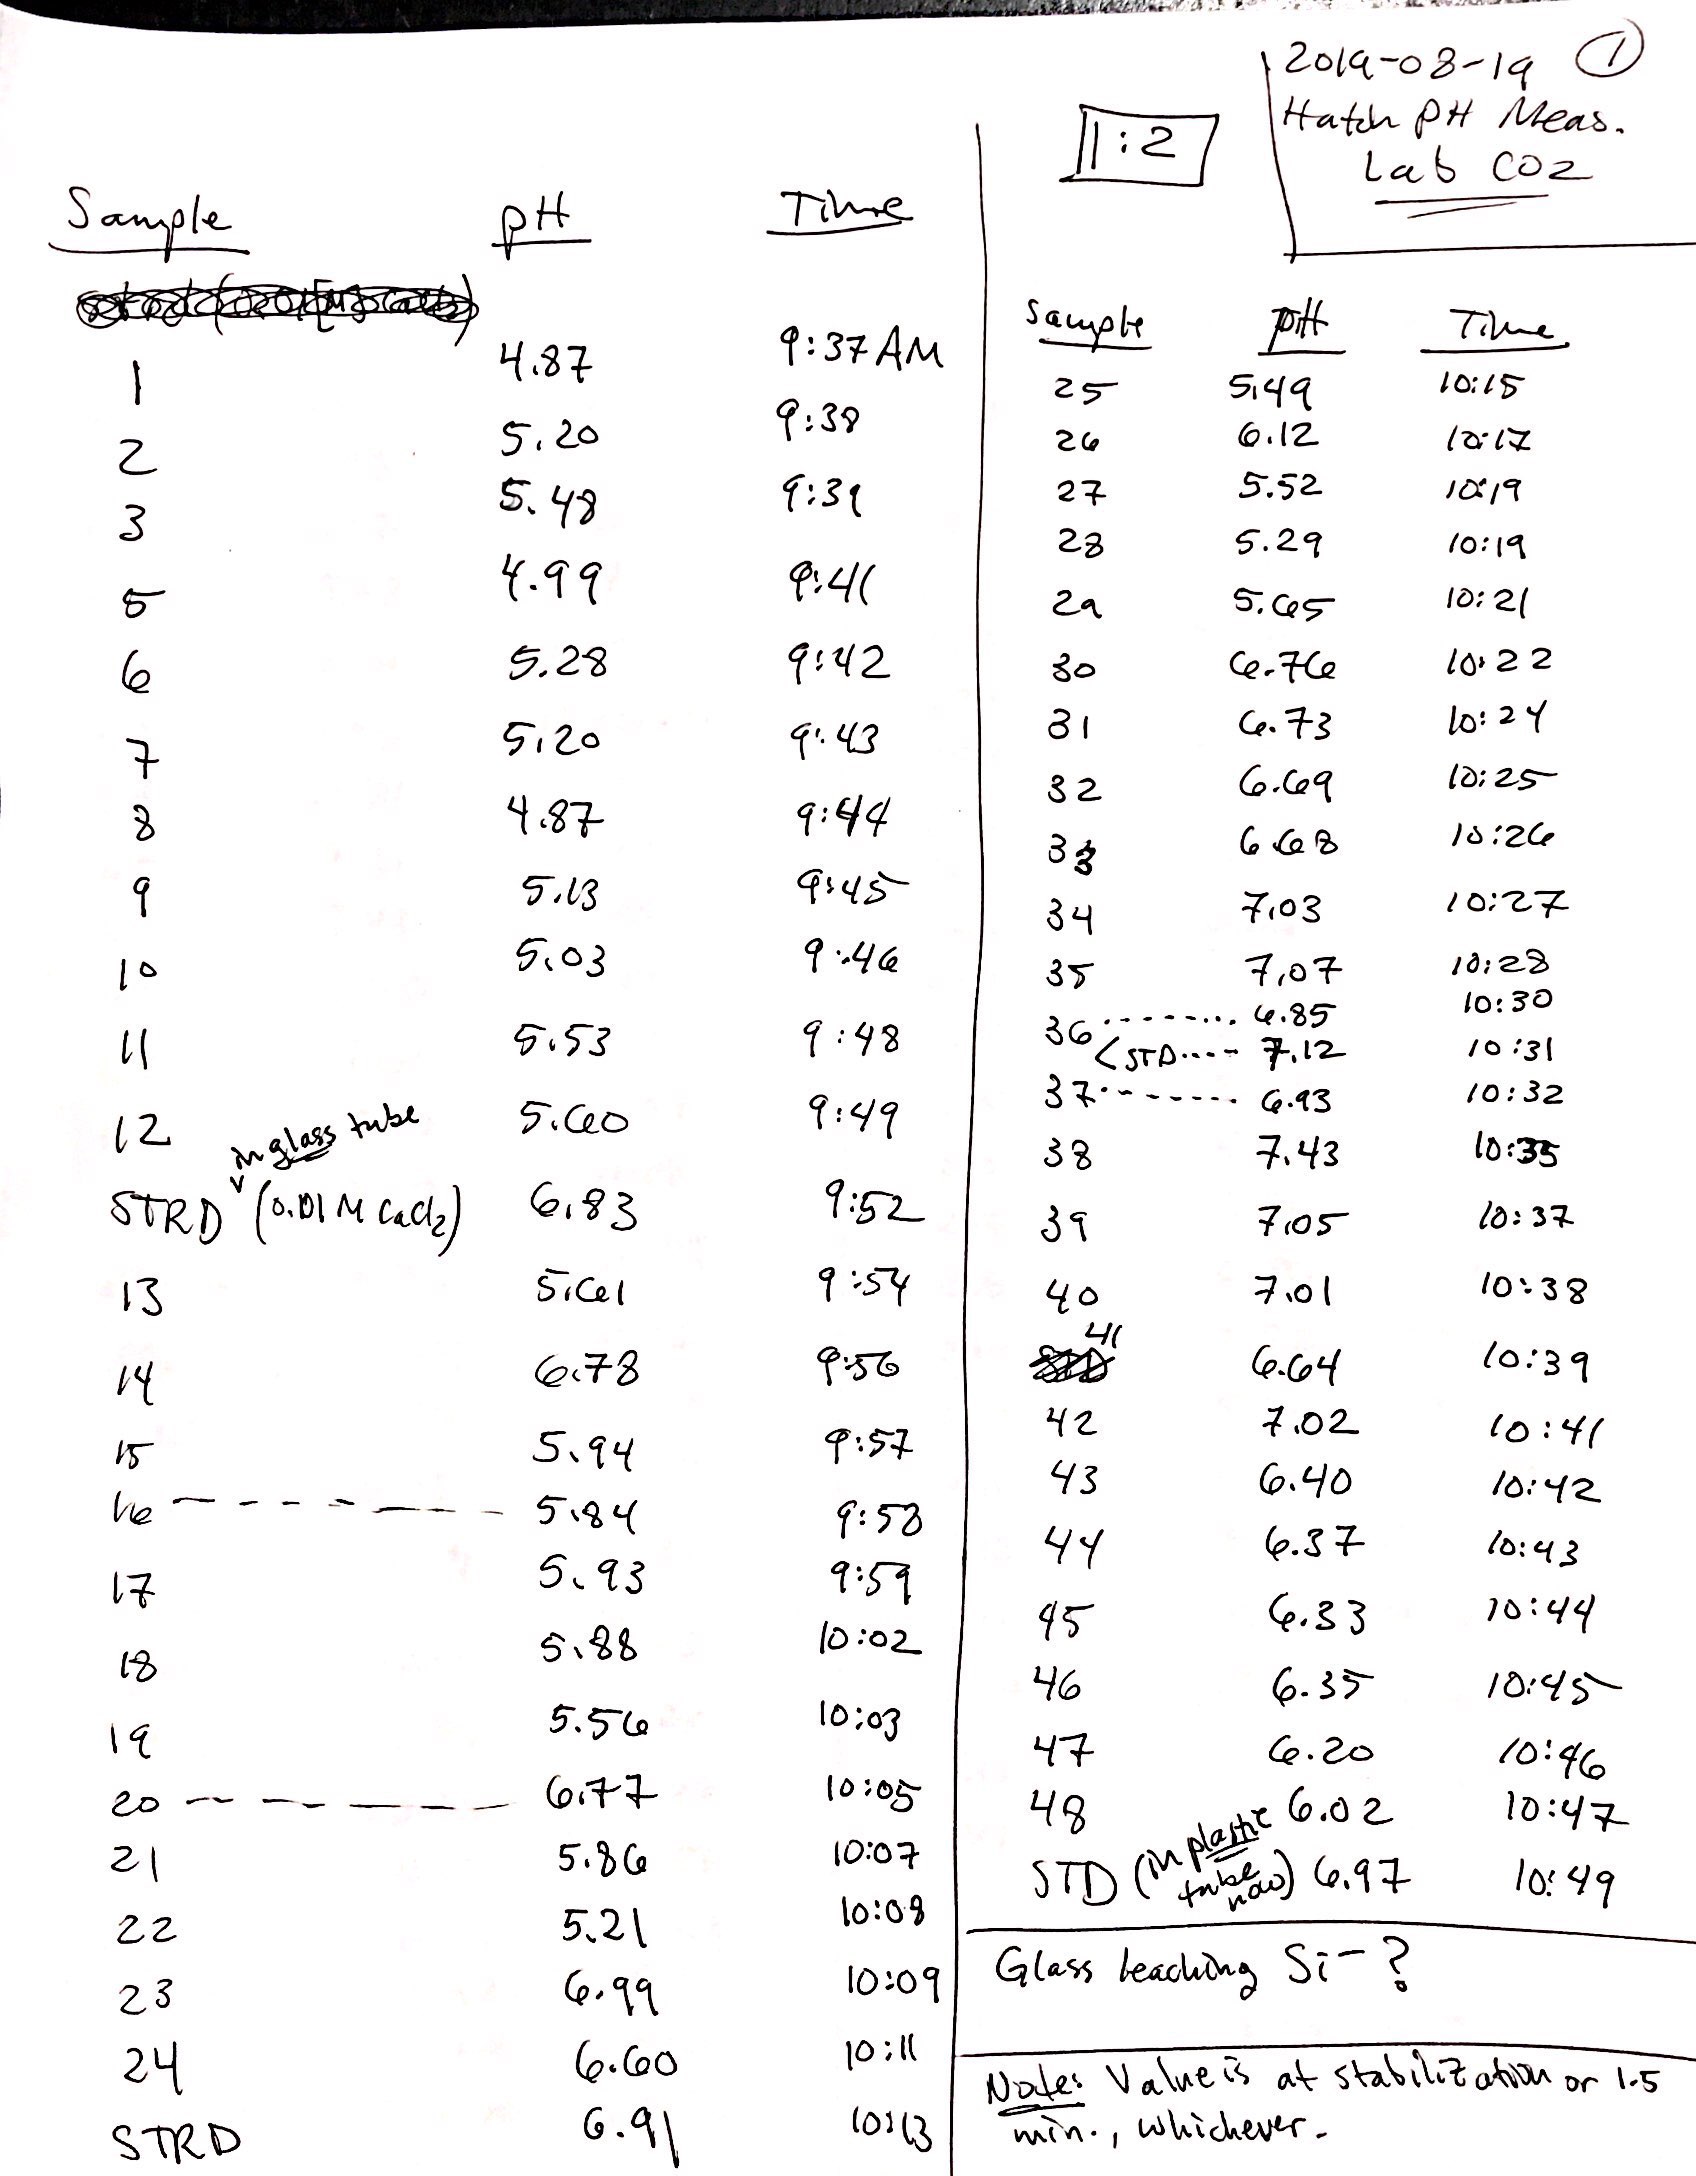 2019-08-19 1
Hatch pH Meas.
Lab CO2
1:2
Sample pH Time
1 4.87 9:37 AM
2 5.20 9:38
3 5.48 9:39
5 4.99 9:41
6 5.28 9:42
7 5.20 9:43
8 4.87 9:44
9 5.13 9:45
10 5.03 9:46
11 5.53 9:48
12 5.60 9:49
in glass tube
STRD (0.01 M CaCl2) 6.83 9:52
13 5.61 9:54
14 6.78 9:56
15 5.94 9:57
16 ------ 5.84 9:58
17 5.93 9:59
18 5.88 10:02
19 5.56 10:03
20 ------ 6.77 10:05
21 5.86 10:07
22 5.21 10:08
23 6.99 10:09
24 6.60 10:11
STRD 6.91 10:13
Sample pH Time
25 5.49 10:15
26 6.12 10:17
27 5.52 10:19
28 5.29 10:19
29 5.65 10:21
30 6.76 10:22
31 6.73 10:24
32 6.69 10:25
33 6.68 10:26
34 7.03 10:27
35 7.07 10:28
36 -------- 6.85 10:30
< STD ----- 7.12 10:31
37 ------- 6.93 10:32
38 7.43 10:35
39 7.05 10:37
40 7.01 10:38
41 6.64 10:39
42 7.02 10:41
43 6.40 10:42
44 6.37 10:43
45 6.33 10:44
46 6.35 10:45
47 6.20 10:46
48 6.02 10:47
STD (in plastic tube now) 6.97 10:49
Glass leaching Si-?
Note: Value is at stabilization or 1.5
min., whichever.